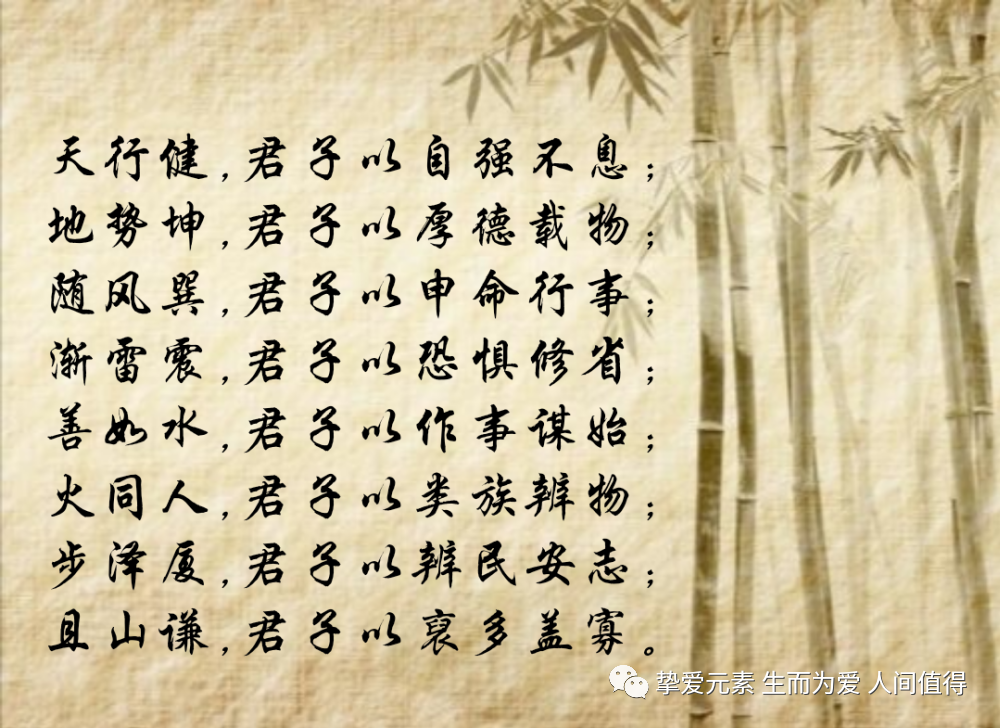 天行健,君子以自强不息;
地势坤,君子以厚德载物;
随风巽,君子以申命行事;
渐雷震,君子以恐惧修省;
善如水,君子以作事谋始;
火同人,君子以类族辨物;
步泽厦,君子以辨民安志;
且山谦,君子以裒多盖寡。
挚爱元素 生而为爱 人间值得